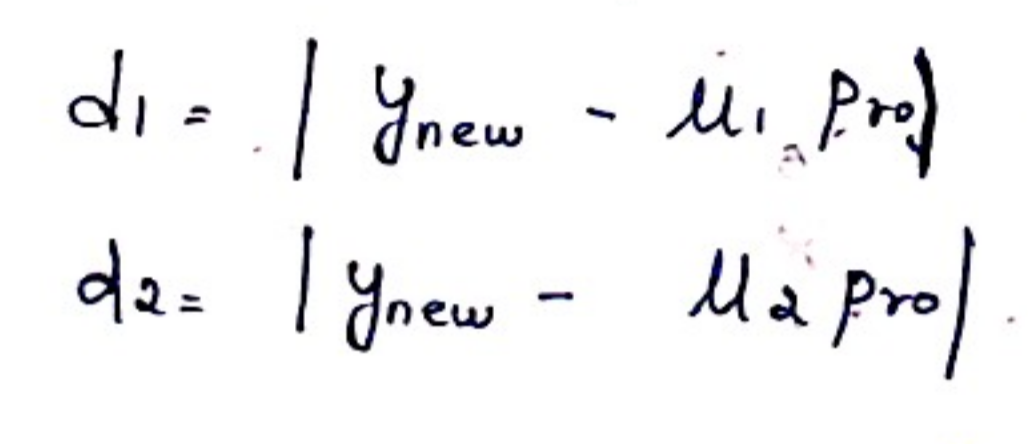 d1 = | ynew - μ1 pro|
d2 = | ynew - μ2 pro|